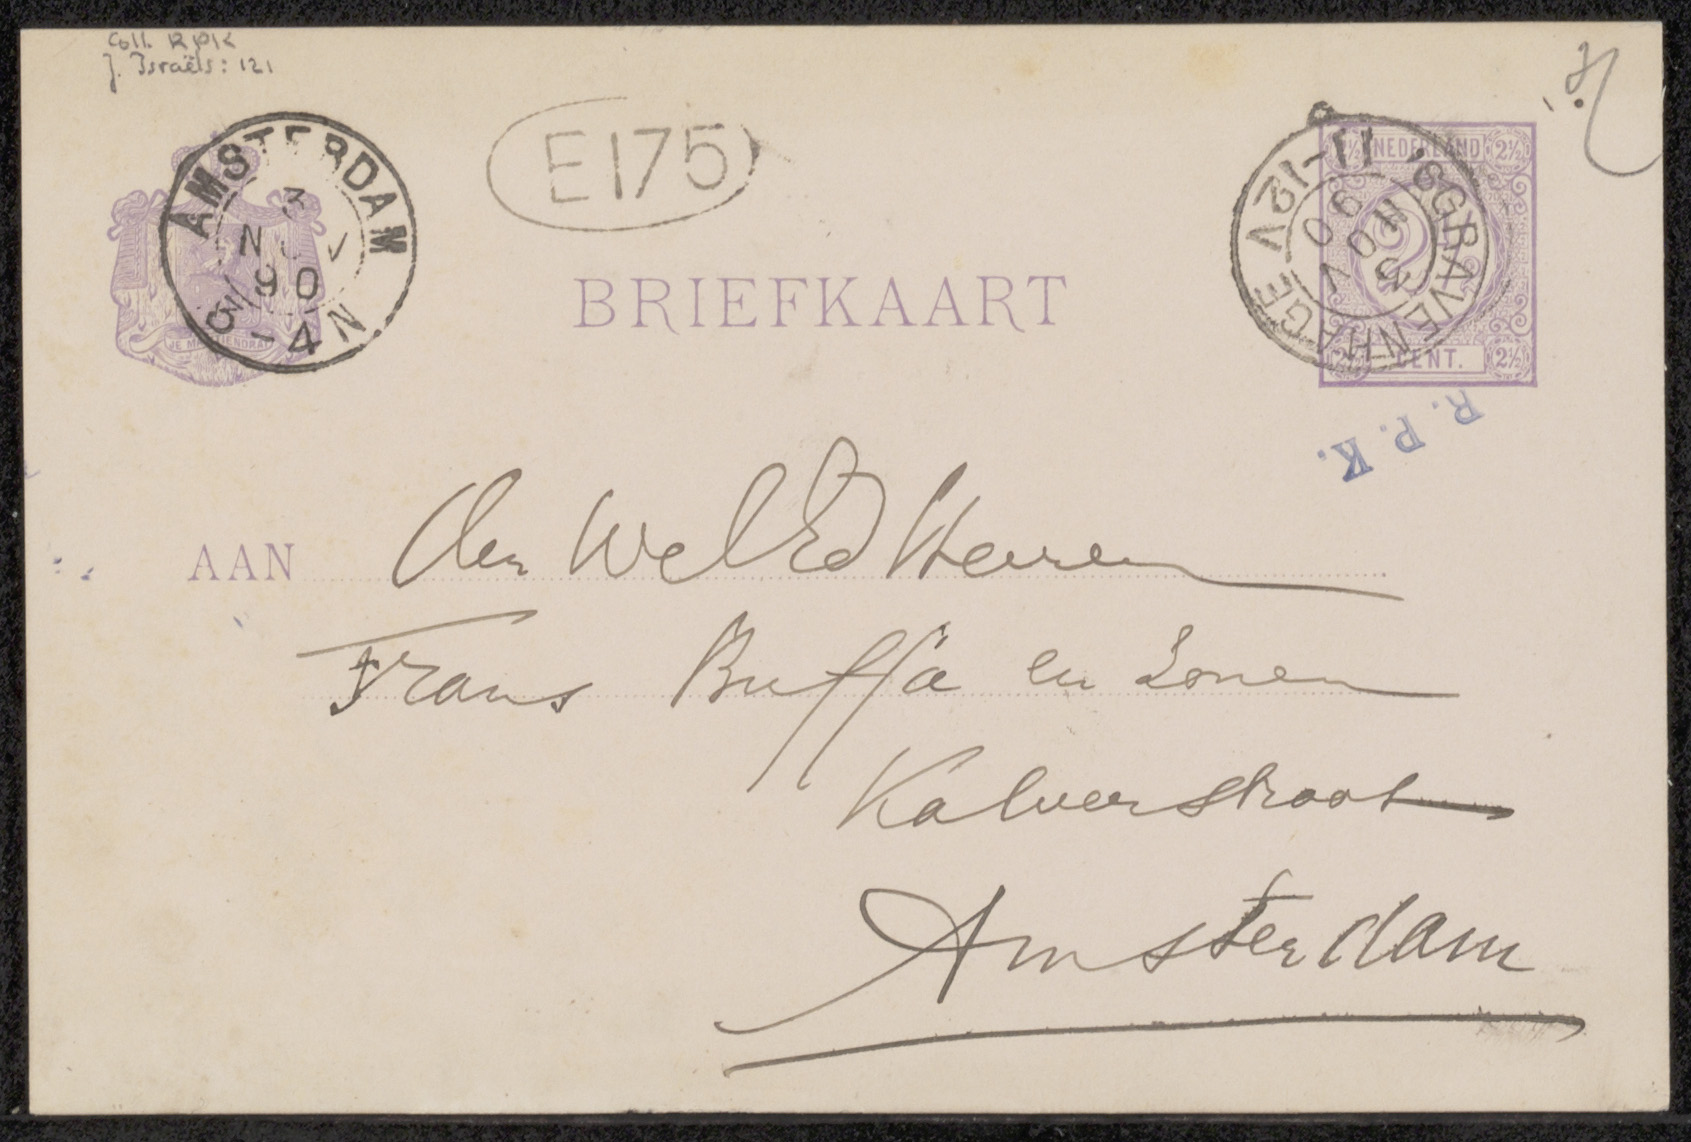 Coll. RPK
J. Israëls: 121
AMSTERDAM
3
NOV
90
3-4N
E175
'SGRAVENHAGE
11-12V
3
NOV
90
NEDERLAND
2½ 2½
2½ CENT. 2½
JE MAINTIENDRAI
BRIEFKAART
R.P.K.
AAN den WelEd Heeren
Frans Buffa en Zonen
Kalverstraat
Amsterdam